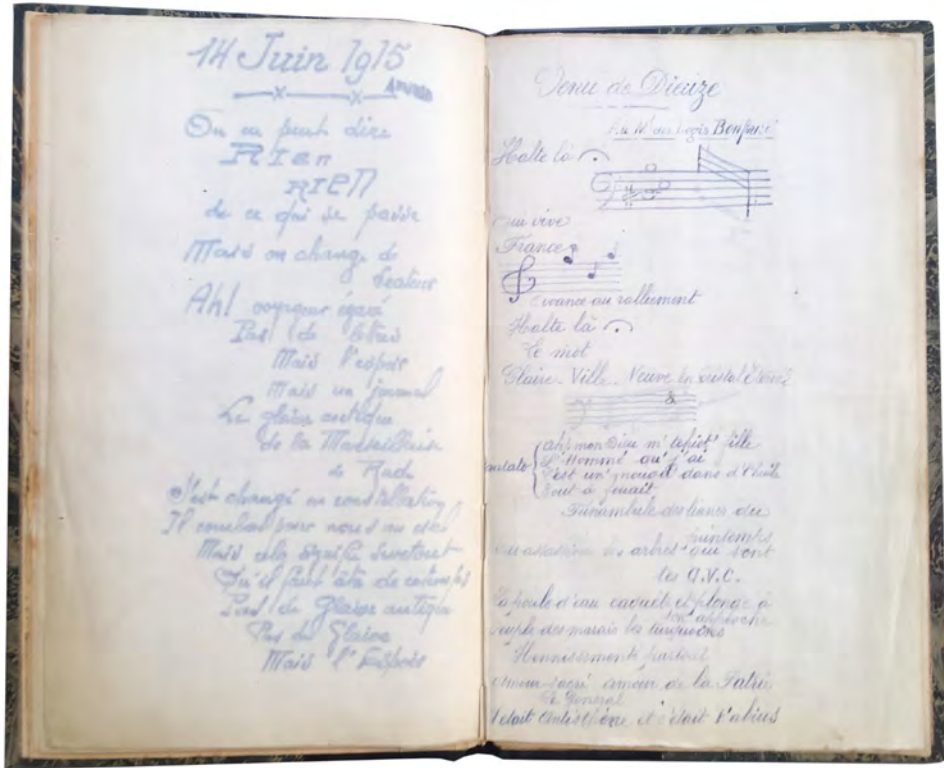 14 Juin 1915
On ne peut dire
RIEN
RIEN
de ce qui se passe
Mais on change de
Secteur
Ah! voyageur égaré
Pas de lettres
Mais l'espoir
Mais un journal
Le glaive antique
de la Marseillaise
de Rude
S'est changé en constellation
Il combat pour nous au ciel
Mais cela signifie surtout
Qu'il faut être de ce temps
Pas de glaive antique
Pas de Glaive
Mais l'Espoir
Venu de Dieuze
Halte là
Qui vive
France
Avance au ralliement
Halte là
Le mot
Claire-Ville-Neuve-En-Cristal-Éternel
Cantato
Ah! mon Dieu m'
fille
L'Homme qu' j'ai
C'est un
dans d' l'huile
Tout à
Funambule des lianes du
printemps
arbres qui sont
les A.V.C.
La poule d'eau caquète et plonge à
ton approche
peuple des marais les
Hennissements partout
Amour sacré amour de la Patrie
Le Général
C'était Antisthène et c'était Fabius